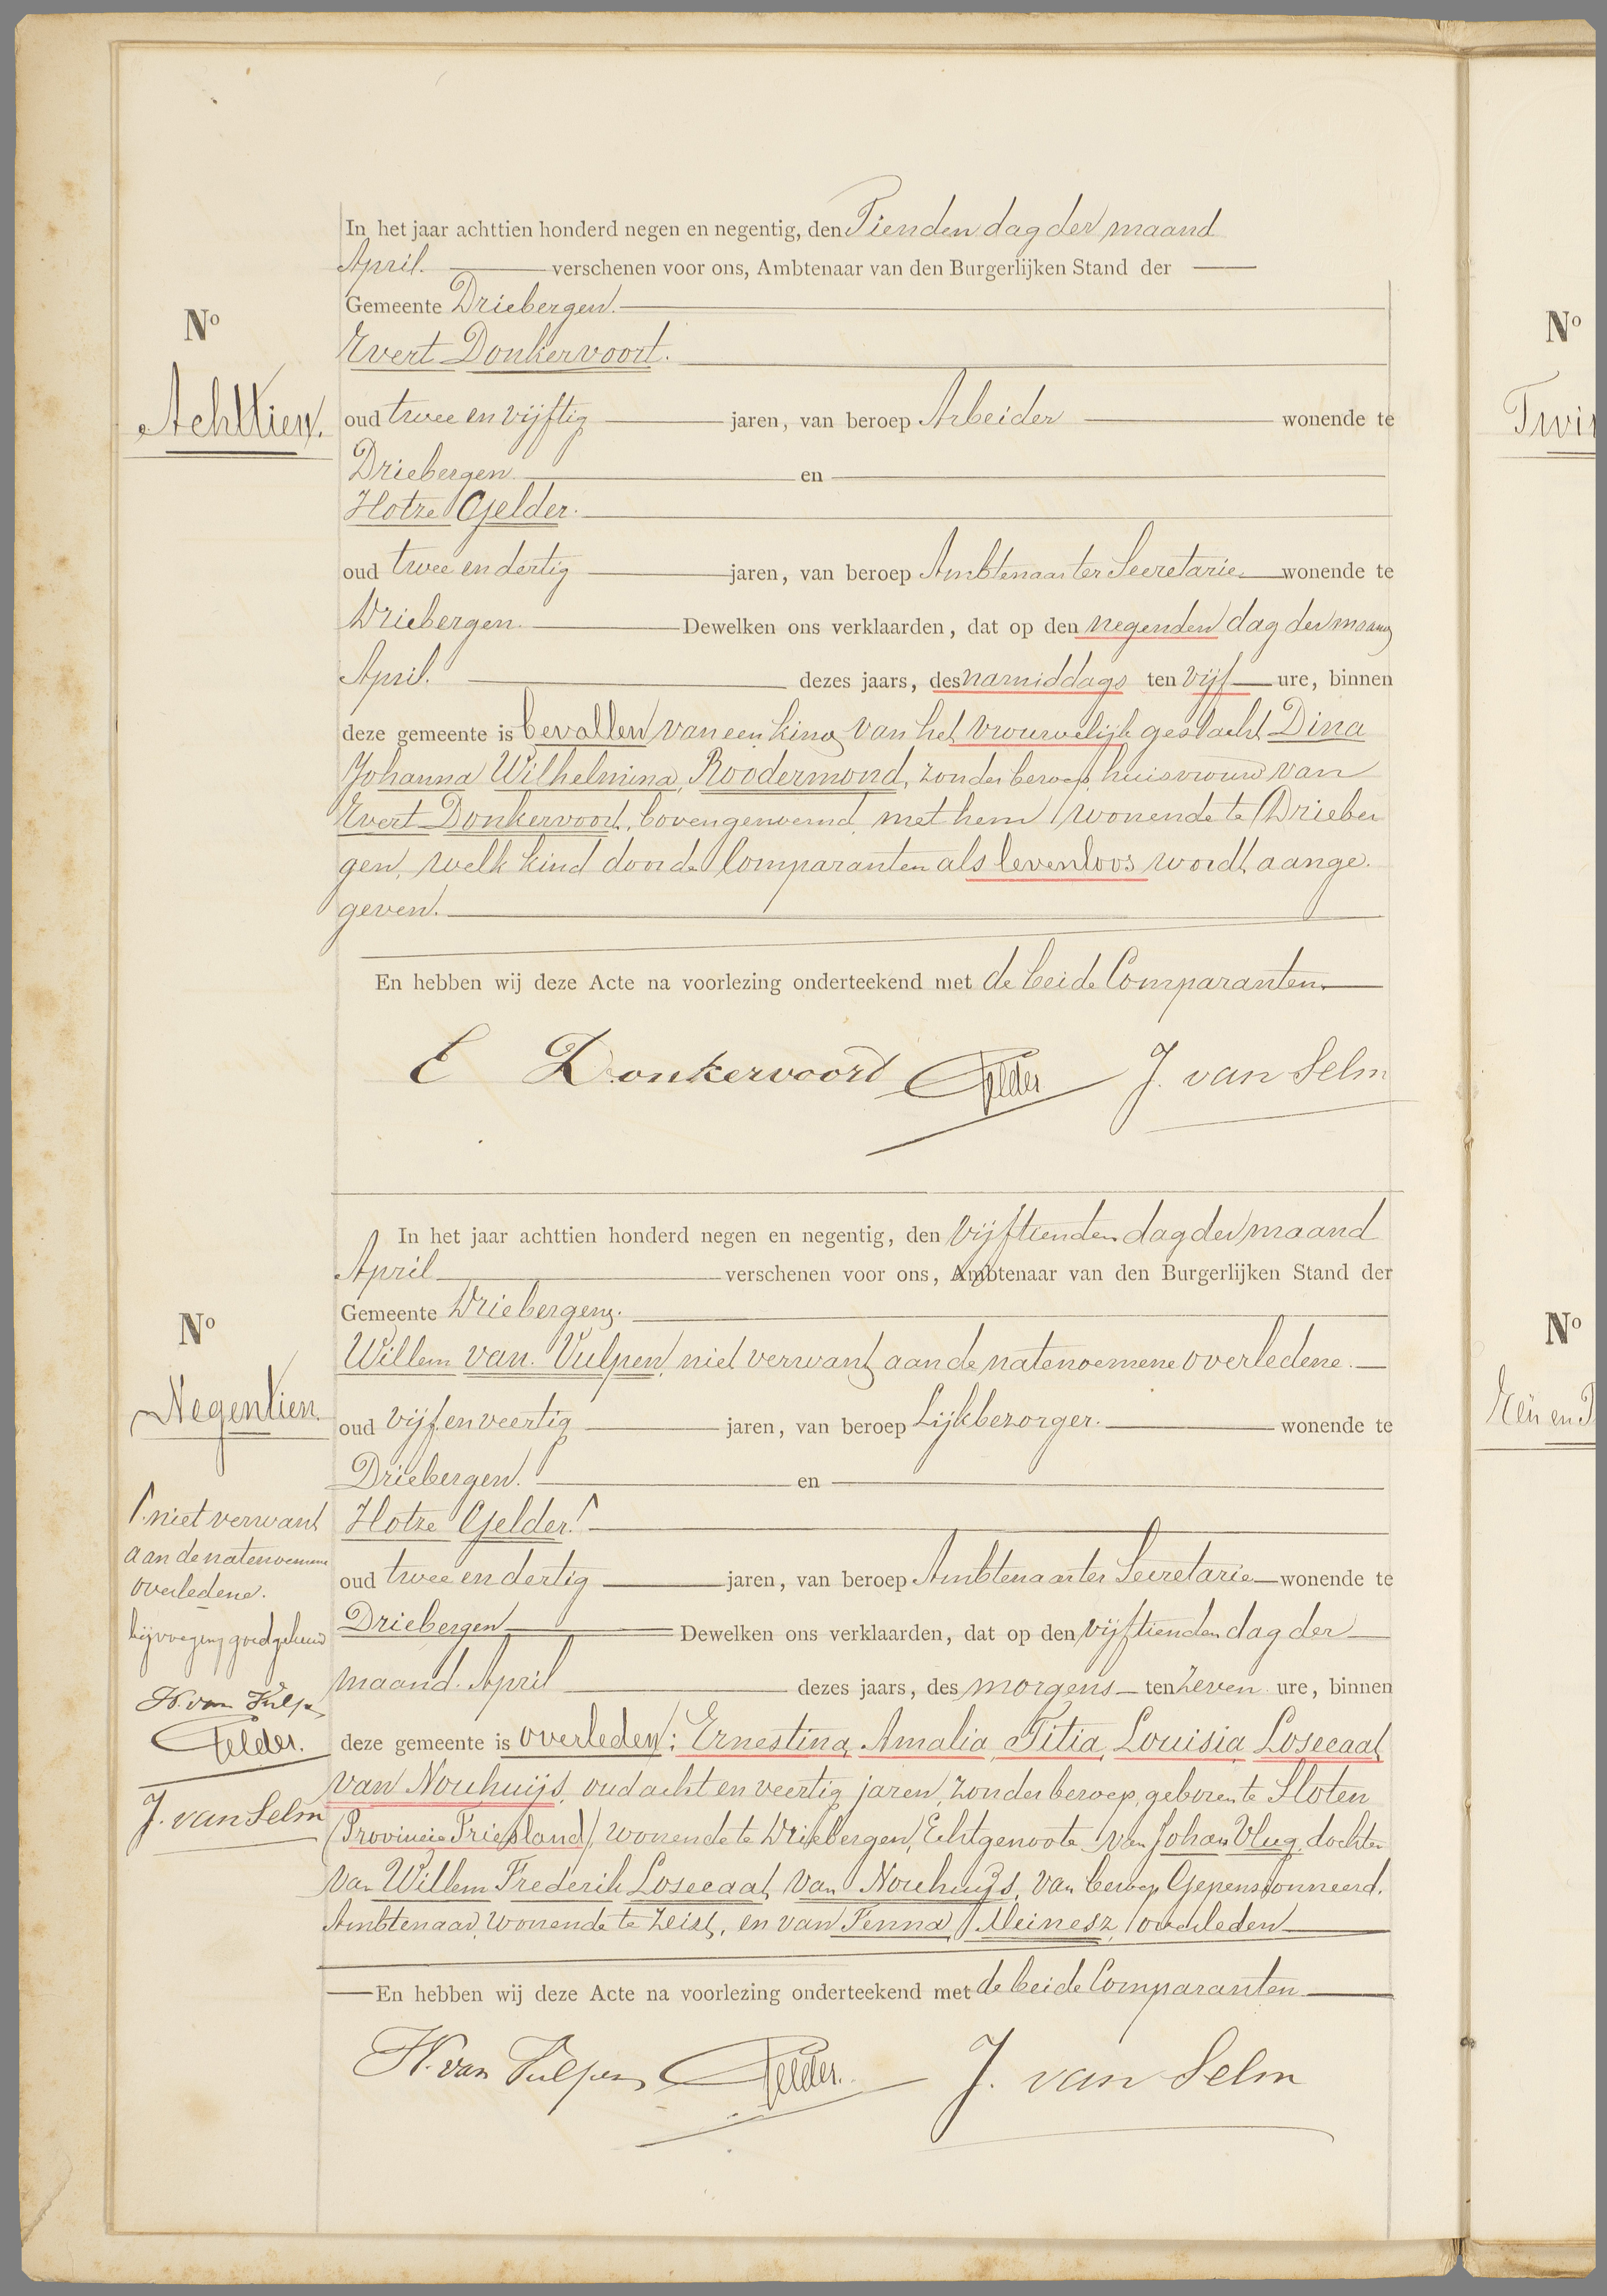 In het jaar achttien honderd negen en negentig, den Tienden dag der maand
April. verschenen voor ons, Ambtenaar van den Burgerlijken Stand der
Gemeente Driebergen.
Nº
Evert Donkervoort.
Achttien.
oud twee en vijftig jaren, van beroep Arbeider wonende te
Driebergen en
Hotze Gelder.
oud twee en dertig jaren, van beroep Ambtenaar ter Secretarie wonende te
Driebergen. Dewelken ons verklaarden, dat op den negenden dag der maand
April. dezes jaars, des namiddags ten vijf ure, binnen
deze gemeente is bevallen van een kind van het vrouwelijk geslacht Dina
Johanna Wilhelmina, Roodermond, zonder beroep, huisvrouw van
Evert Donkervoort, bovengenoemd, met hem wonende te Drieber
gen, welk kind door de Comparanten als levenloos wordt aange.
geven.
En hebben wij deze Acte na voorlezing onderteekend met de beide Comparanten.
E Donkervoord Gelder J. van Selm
In het jaar achttien honderd negen en negentig, den vijftienden dag der maand
April verschenen voor ons, Ambtenaar van den Burgerlijken Stand der
Gemeente Driebergen.
Nº
Willem van Vulpen, niet verwant aan de natenoemene overledene.
Negentien.
oud vijf en veertig jaren, van beroep Lijkbezorger. wonende te
Driebergen. en
Hotze Gelder.
oud twee en dertig jaren, van beroep Ambtenaar ter Secretarie wonende te
Driebergen Dewelken ons verklaarden, dat op den vijftienden dag der
maand April dezes jaars, des morgens ten zeven ure, binnen
deze gemeente is overleden: Ernestina Amalia Titia Louisia Losecaat
van Nouhuijs, oud acht en veertig jaren, zonder beroep, geboren te Sloten
(Provincie Friesland), wonende te Driebergen, Echtgenoote van Johan Vlug, dochter
van Willem Frederik Losecaat van Nouhuijs, van beroep Gepensionneerd.
Ambtenaar, wonende te Zeist, en van Tenna Meinesz, overleden
En hebben wij deze Acte na voorlezing onderteekend met de beide Comparanten
van Vulpen Gelder. J. van Selm
niet verwant
aan de natenoemene
overledene.
bijvoeging goedgekeurd
van Vulpen
Gelder.
J. van Selm
Nº
Nº